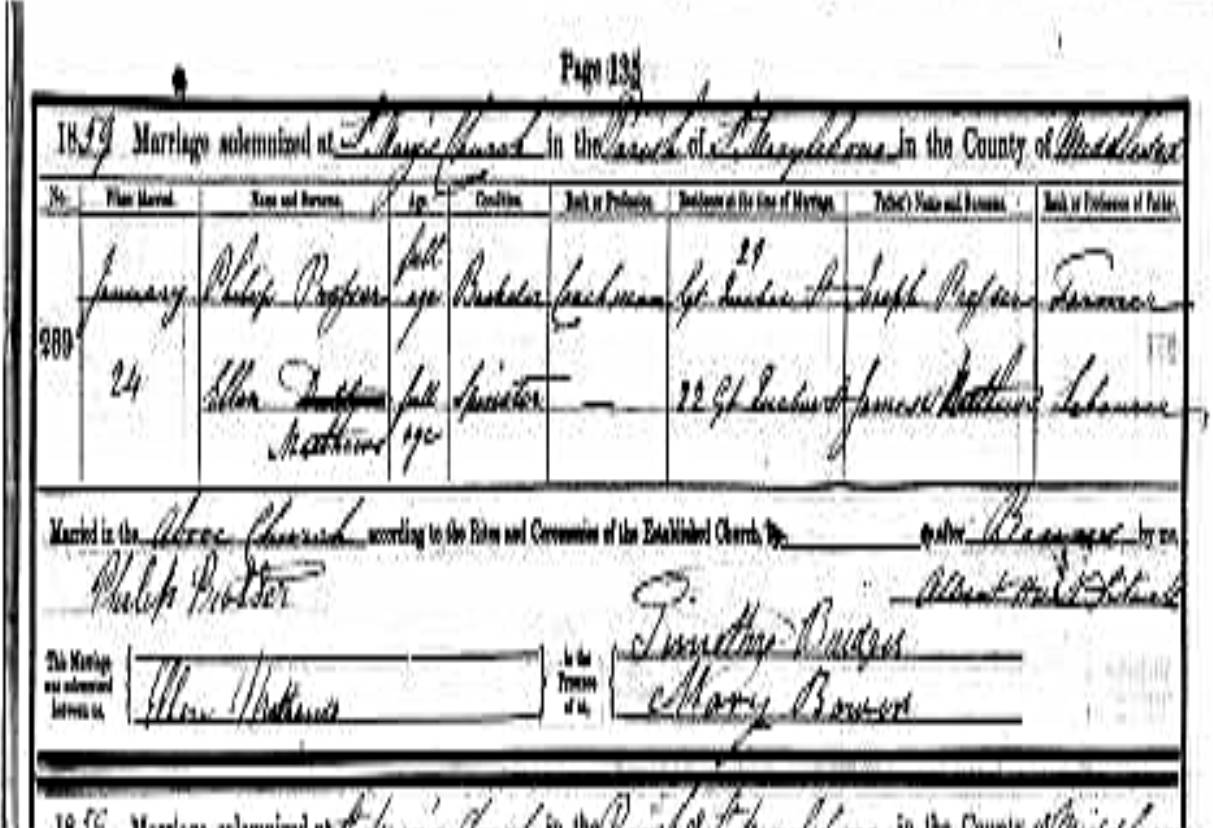 Page 135
1859 Marriage solemnized at St. Mary's Church in the Parish of St. Marylebone in the County of Middlesex
No. When Married. Name and Surname. Age Condition. Rank or Profession. Residence at the time of Marriage. Father's Name and Surname. Rank or Profession of Father.
full 29
January Philip Prosser age Bachelor Coachman Gt Quebec St Joseph Prosser Farmer
269
24 Ellen full Spinster — 22 Gt Quebec St James Matthews Labourer
Matthews age
Married in the Above Church according to the Rites and Ceremonies of the Established Church, by or after Banns by me,
Philip Prosser Albert
Timothy Bridges
This Marriage was solemnized between us, Ellen Matthews in the Presence of us, Mary Bowen
18 Marriage solemnized at Church in the Parish of in the County of